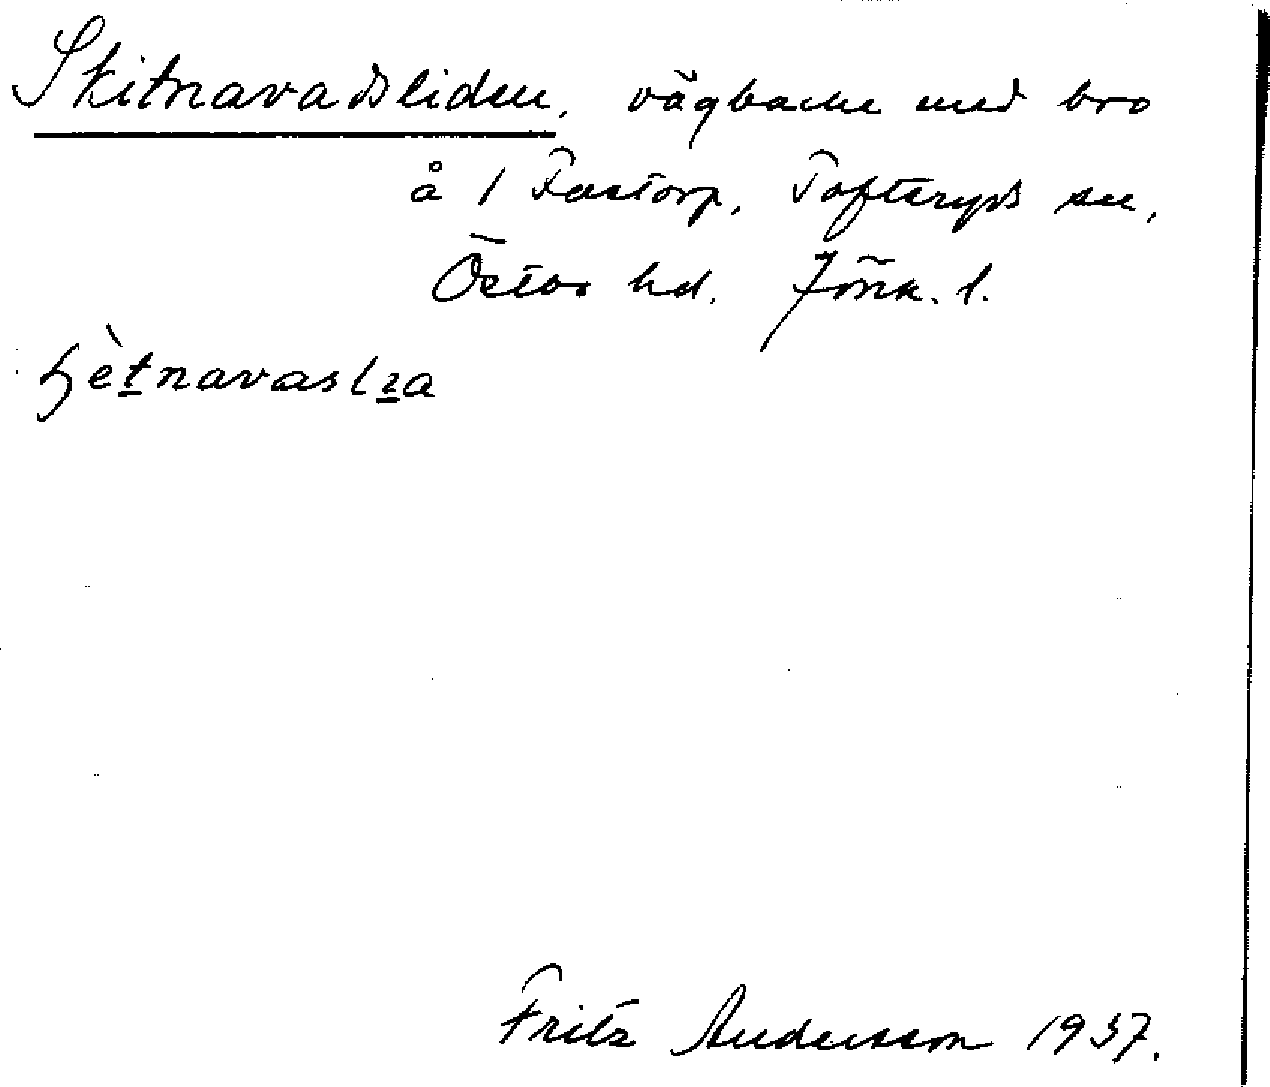 Skitnavadsliden, vägbacke med bro
å 1 Fastorp, Tofteryds sn,
Östbo hd. Jönk. l.
Fritz Andersson 1937.